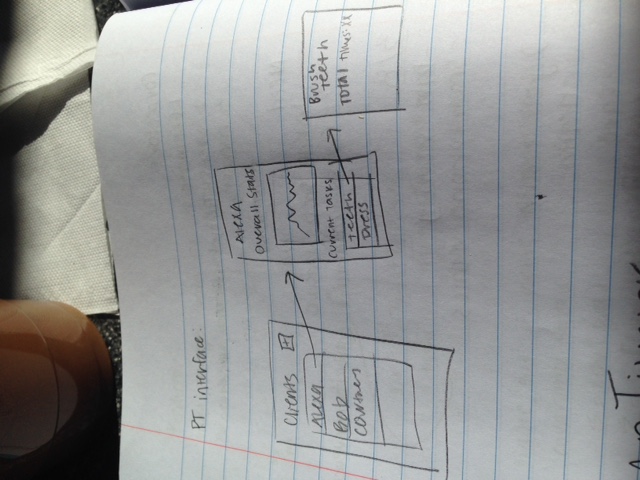 PT interface:
Clients +
Alexa
Bob
Courtney
Alexa
Overall Stats
Current Tasks
Teeth
Dress
Brush
Teeth
Total Times: xx